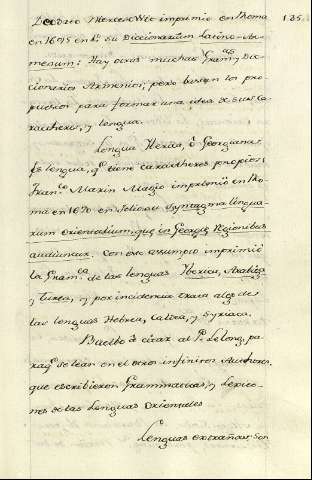 135.
Deodato Mersesowic imprimio en Roma
en 1695 en 4º su Diccionarium Latino-Ar-
menum: Hay otras muchas Gramas y Dic-
cionarios Armenios, pero bastan los pro-
puestos para formar una idea de sus Ca-
ractheres, y lengua.
Lengua Yberica, ò Georgiana
Es lengua, qe tiene caractheres propios;
Franco Maria Magio imprimiò en Ro-
ma en 1670 en folio su Syntagma lingua-
rum orientalium, que in Georgiæ Regionibus
audiuntur. Con este assumpto imprimiò
la Gramca de las lenguas Yberica, Arabiga
y Turca, y por incidencia trata algo de
las lenguas Hebrea, Caldea, y Syriaca.
Buelbo à citar al Pe Lelong, pa-
ra qe se lean en el otros infinitos Authores,
que escribieron Grammaticas, y Lexico-
nes de las Lenguas Orientales
Lenguas extrañas, son